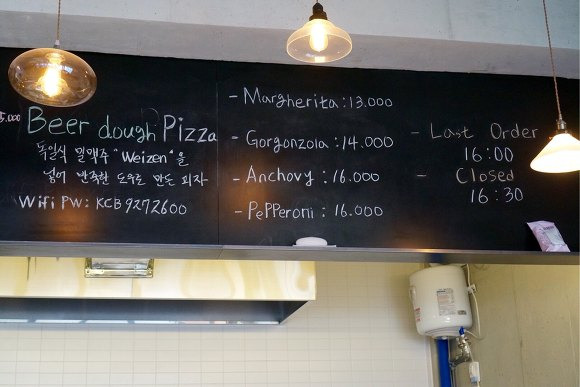 5,000
Beer dough Pizza
독일식 밀맥주 "Weizen" 을
넣어 반죽한 도우로 만든 피자
Wifi PW: KCB9272600
- Margherita : 13.000
- Gorgonzola : 14.000
- Anchovy : 16.000
- PePPeroni : 16.000
- Last Order
16:00
- Closed
16:30